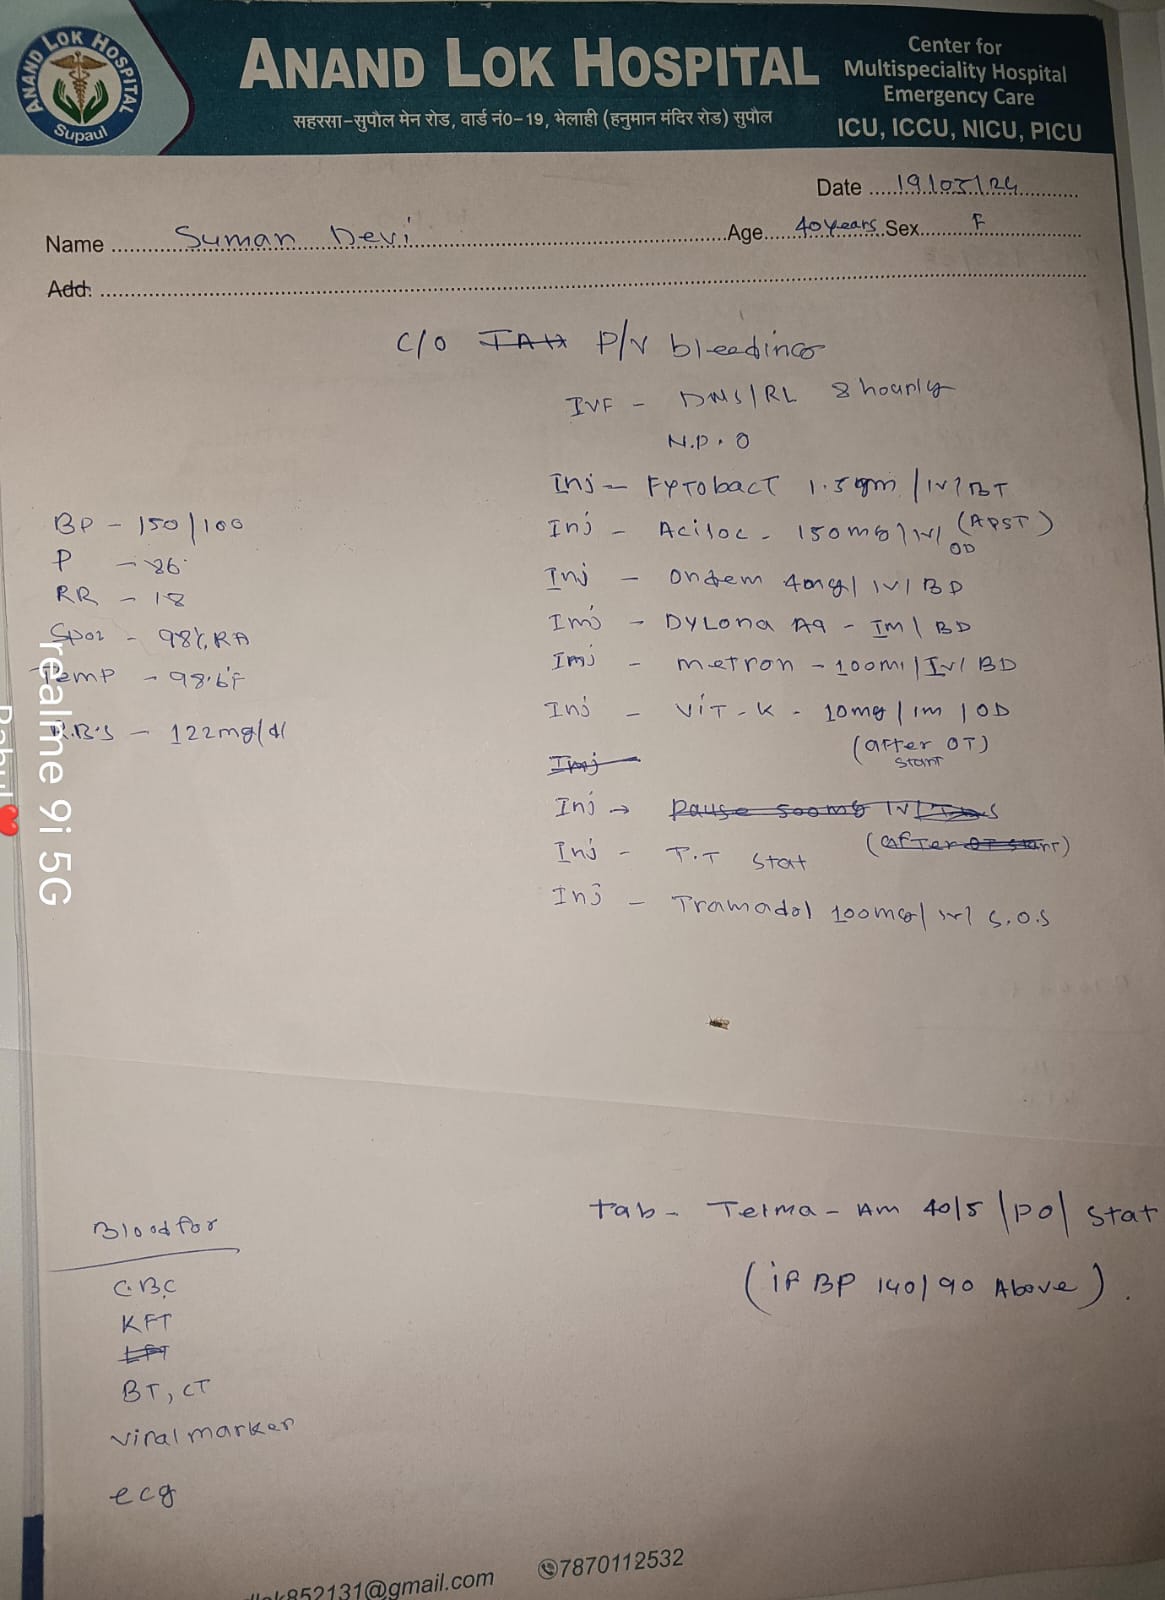 ANAND LOK HOSPITAL
Supaul
ANAND LOK HOSPITAL
सहरसा-सुपौल मेन रोड, वार्ड नं0-19, भेलाही (हनुमान मंदिर रोड) सुपौल
Center for
Multispeciality Hospital
Emergency Care
ICU, ICCU, NICU, PICU
Date 19/05/24
Name Suman Devi Age 40 years Sex F
Add:
C/O P/V bleeding
IVF - DNS/RL 8 hourly
N.P.O
Inj - Fytobact 1.5gm / IV / BT
(APST)
Inj - Aciloc - 150mg / IV / OD
Inj - Ondem 4mg / IV / BD
Inj - Dylona AQ - IM / BD
Inj - metron - 100ml / IV / BD
Inj - VIT-K - 10mg / IM / OD
(after OT)
start
Inj
Inj → Pause 500mg IV
(after OT start)
Inj - T.T stat
Inj - Tramadol 100mg / IV / S.O.S
BP - 150/100
P - 86
RR - 18
SpO2 - 98% RA
Temp - 98.6°F
R.B.S - 122mg/dl
tab - Telma - Am 40/5 / PO / stat
(if BP 140/90 Above).
Blood for
C.B.C
KFT
LFT
BT, CT
viral marker
ecg
852131@gmail.com
7870112532
realme 9i 5G